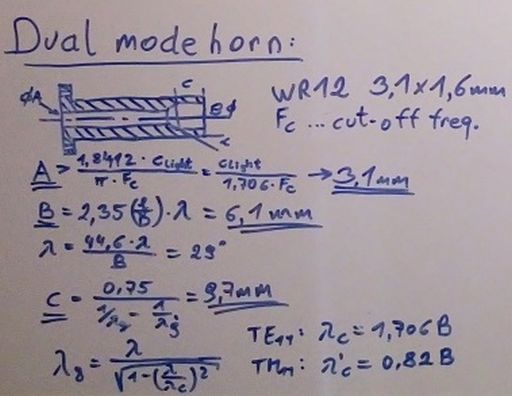 Dual mode horn:
C
ØA
BØ
WR12 3,1x1,6mm
Fc ... cut-off freq.
A > 1,8412 · cLight / π · Fc = cLight / 1,706 · Fc → 3,1mm
B = 2,35 (f/D) · λ = 6,1mm
λ = 44,6 · λ / B = 29°
C = 0,75 / 1/λg - 1/λ'g = 9,7mm
λg = λ / √1-(λ/λc)²
TE11: λc = 1,706 B
TM11: λ'c = 0,82 B